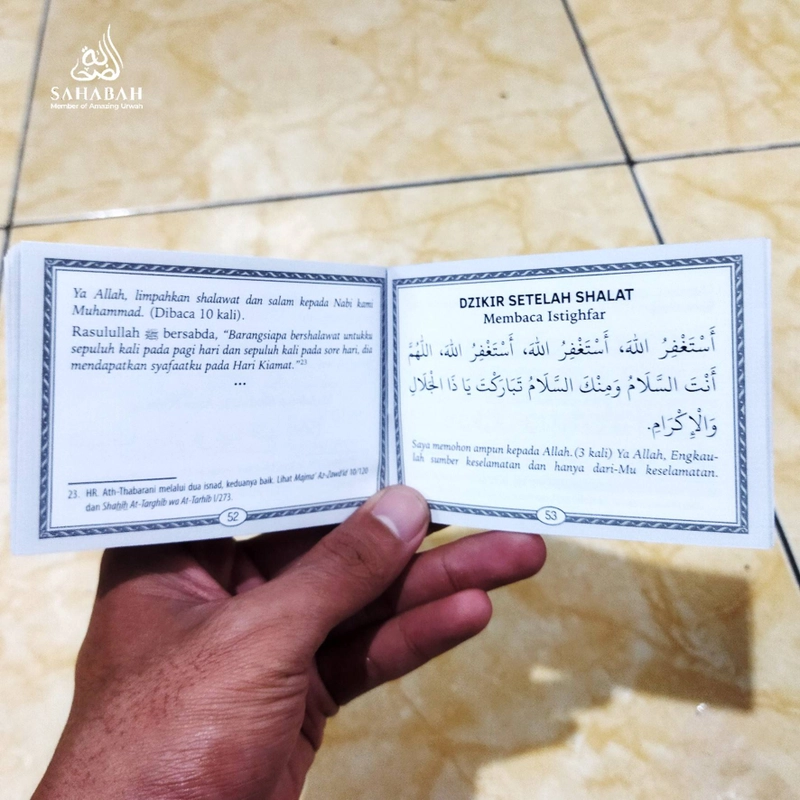 الصحابة
SAHABAH
Member of Amazing Urwah
Ya Allah, limpahkan shalawat dan salam kepada Nabi kami
Muhammad. (Dibaca 10 kali).
Rasulullah ﷺ bersabda, “Barangsiapa bershalawat untukku
sepuluh kali pada pagi hari dan sepuluh kali pada sore hari, dia
mendapatkan syafaatku pada Hari Kiamat.”23
...
23. HR. Ath-Thabarani melalui dua isnad, keduanya baik. Lihat Majma' Az-Zawâ'id 10/120
dan Shaḥiḥ At-Targhîb wa At-Tarhîb I/273.
52
DZIKIR SETELAH SHALAT
Membaca Istighfar
أَسْتَغْفِرُ اللهَ، أَسْتَغْفِرُ اللهَ، أَسْتَغْفِرُ اللهَ، اَللّٰهُمَّ
أَنْتَ السَّلَامُ وَمِنْكَ السَّلَامُ تَبَارَكْتَ يَا ذَا الْجَلَالِ
وَالْإِكْرَامِ.
Saya memohon ampun kepada Allah. (3 kali) Ya Allah, Engkau-
lah sumber keselamatan dan hanya dari-Mu keselamatan.
53